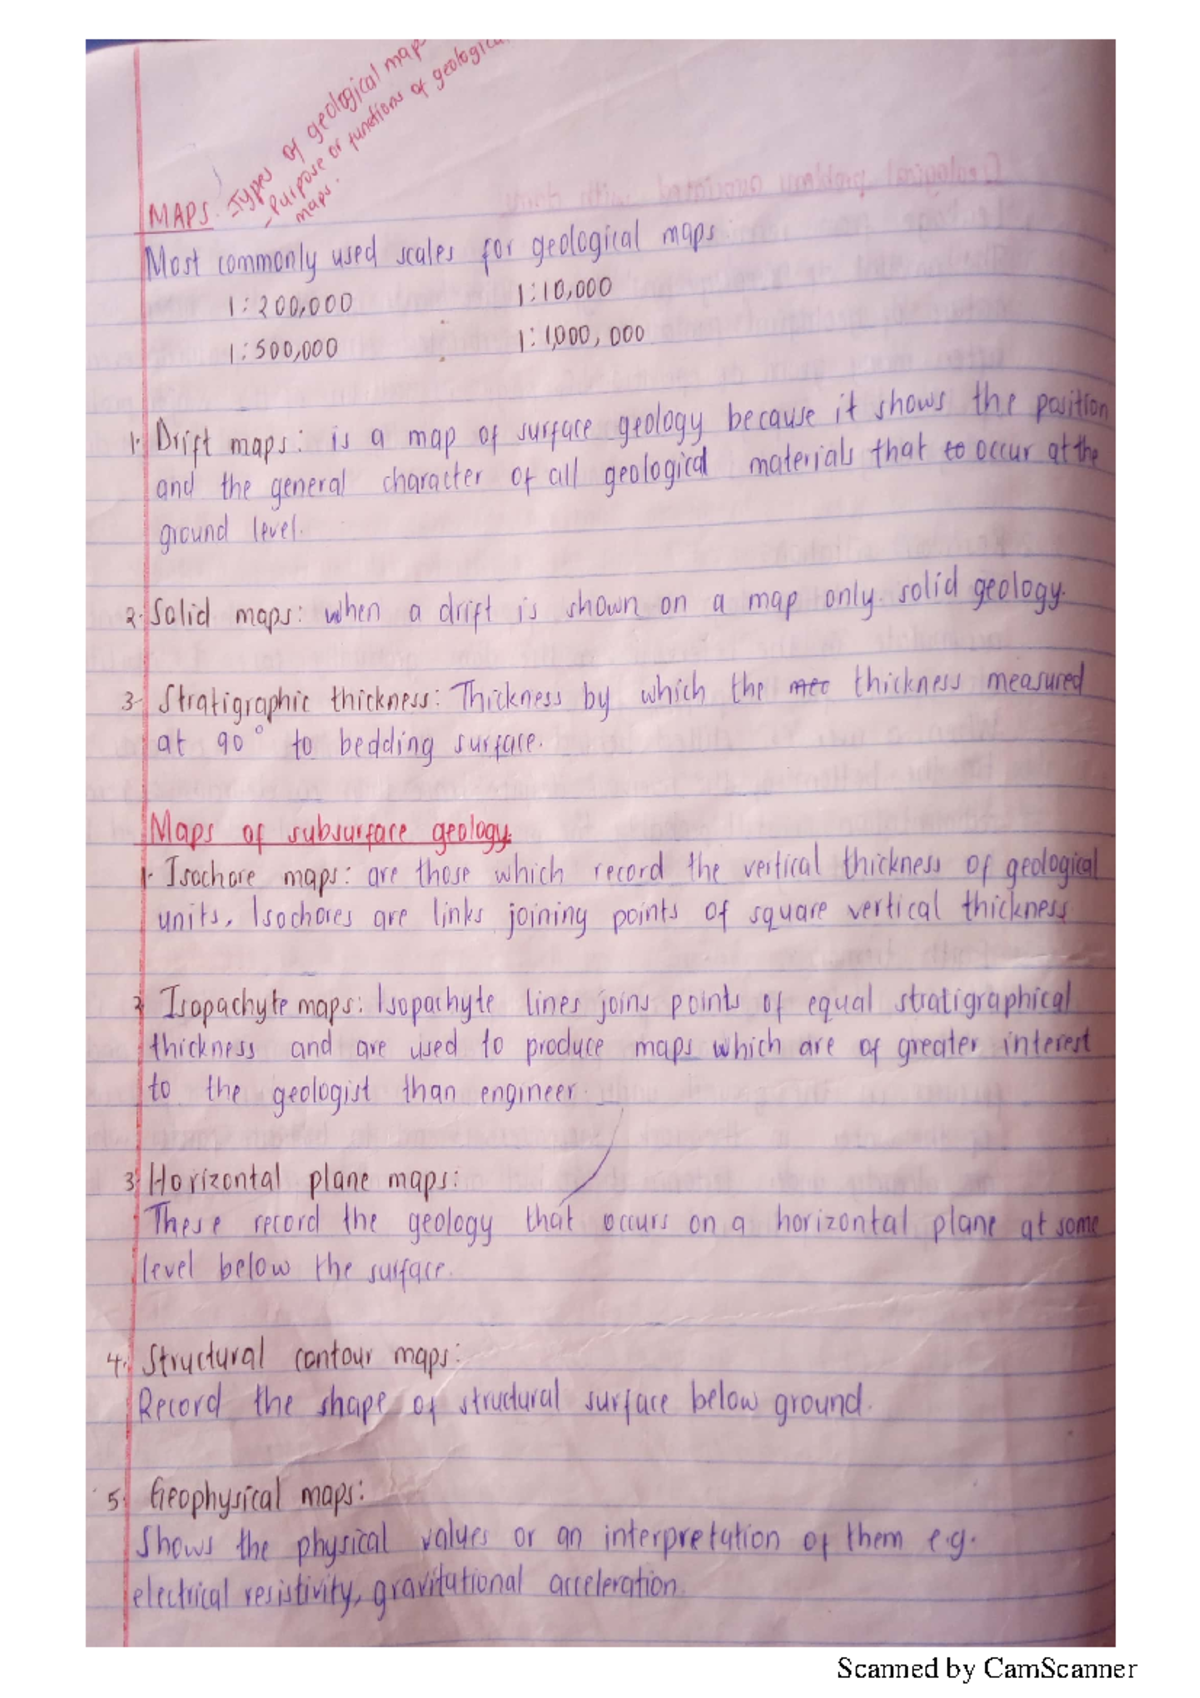 -Types of geological map
-Purpose or functions of geological
maps.
MAPS.
Most commonly used scales for geological maps
1:200,000 1:10,000
1:500,000 1:1,000,000
1. Drift maps: is a map of surface geology because it shows the position
and the general character of all geological materials that to occur at the
ground level.
2. Solid maps: when a drift is shown on a map only solid geology.
3. Stratigraphic thickness: Thickness by which the thickness measured
at 90° to bedding surface.
Maps of subsurface geology.
1. Isochore maps: are those which record the vertical thickness of geological
units. Isochores are links joining points of square vertical thickness
2 Isopachyte maps: Isopachyte lines joins points of equal stratigraphical
thickness and are used to produce maps which are of greater interest
to the geologist than engineer.
3 Horizontal plane maps:
These record the geology that occurs on a horizontal plane at some
level below the surface.
4. Structural contour maps:
Record the shape of structural surface below ground.
5. Geophysical maps:
Shows the physical values or an interpretation of them e.g.
electrical resistivity, gravitational acceleration.
Scanned by CamScanner